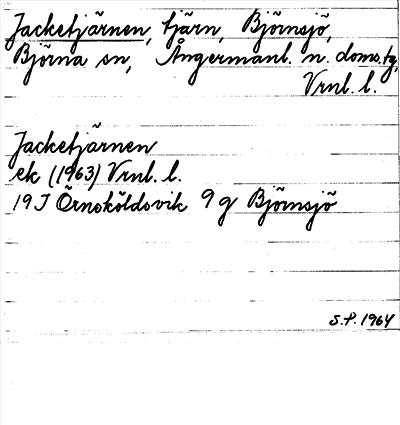 Jacketjärnen, tjärn, Björnsjö,
Björna sn, Ångermanl. n. doms.tg,
Vrnl. l.
Jacketjärnen
ek (1963) Vrnl. l.
19J Örnsköldsvik 9g Björnsjö
S.P. 1964